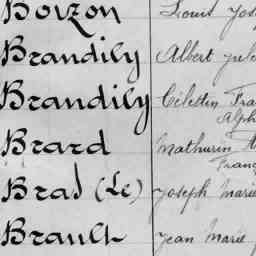 Bouzon Louis Jos
Brandily Albert Jule
Brandily Célestin Fra
Alph
Brard Mathurin
Franç
Bras (Le) Joseph Marie
Brault Jean Marie